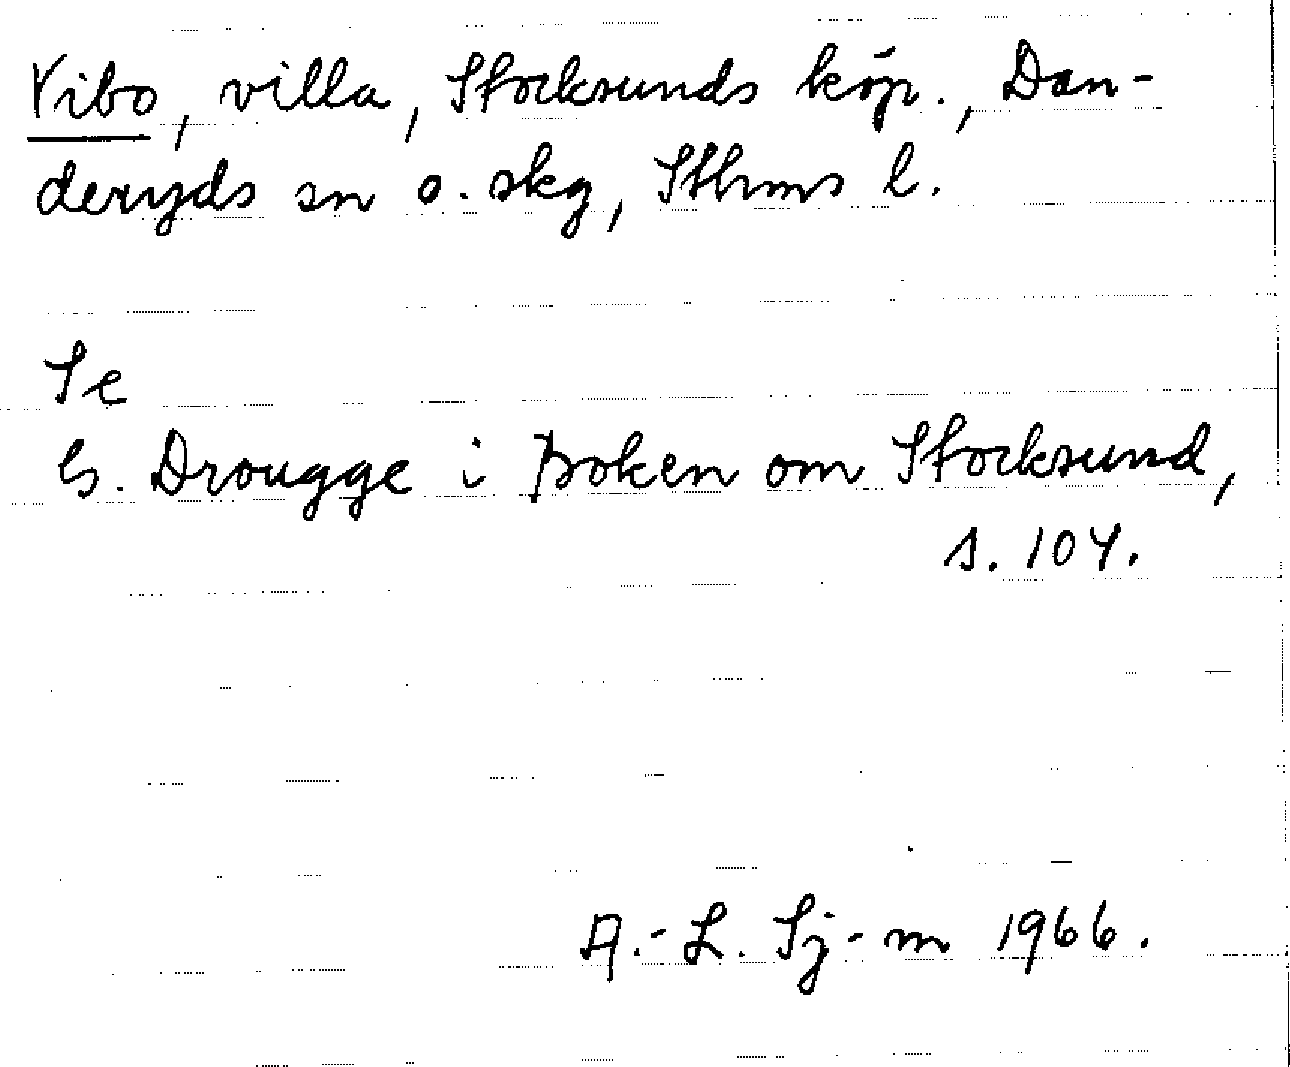 Vibo, villa, Stocksunds köp., Dan-
deryds sn o. skg, Sthms l.
Se
G. Drougge i Boken om Stocksund,
s. 104.
A.-L. Sj-m 1966.